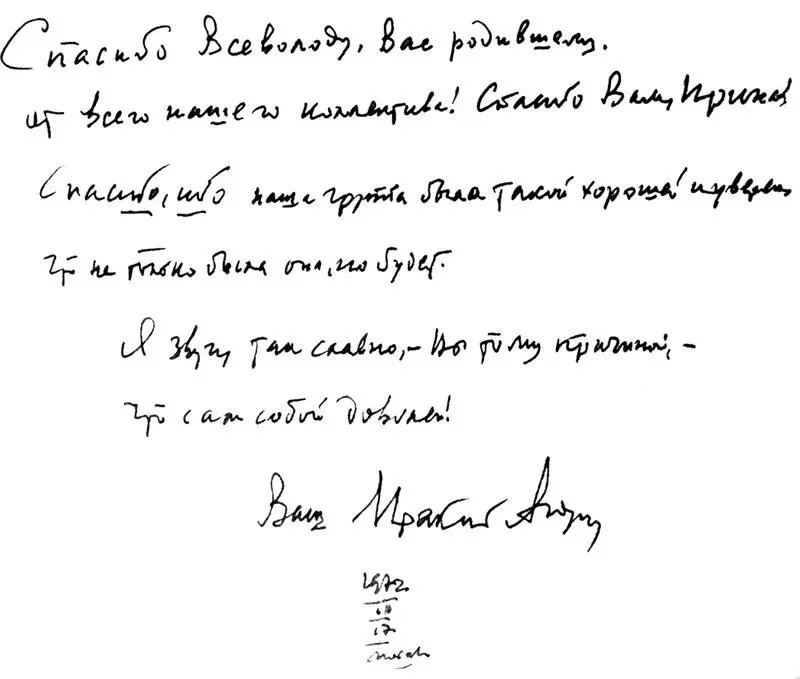 Спасибо Всеволоду, Вас родившему.
от всего нашего коллектива! Спасибо Вам, Ирина
Спасибо, ибо наша группа была такой хорошей и уверен
что не только была она, но будет.
Я звучу так славно, – Вы тому причиной, –
что сам собой доволен!
Ваш Ираклий Андр
1972
III
17